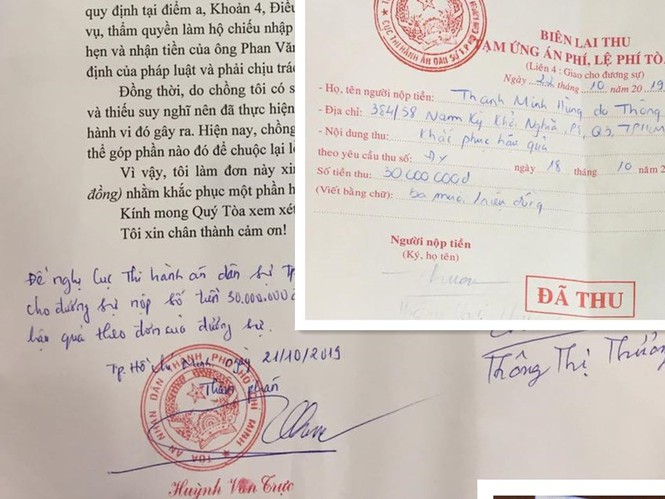 quy định tại điểm a, Khoản 4, Điều
vụ, thẩm quyền làm hộ chiếu nhập
hẹn và nhận tiền của ông Phan Văn
định của pháp luật và phải chịu trác
Đồng thời, do chồng tôi có s
và thiếu suy nghĩ nên đã thực hiện
hành vi đó gây ra. Hiện nay, chồng
thể góp phần nào đó để chuộc lại l
Vì vậy, tôi làm đơn này xin
đồng) nhằm khắc phục một phần h
Kính mong Quý Tòa xem xét
Tôi xin chân thành cảm ơn!
Đề nghị Cục Thi hành án dân sự Tp
cho đương sự nộp số tiền 30.000.000
hậu quả theo đơn của đương sự.
Tp. Hồ Chí Minh, ngày 21/10/2019
Thẩm phán
TÒA ÁN NHÂN DÂN THÀNH PHỐ HỒ CHÍ MINH
Huỳnh Văn Trực
CỤC THI HÀNH ÁN DÂN SỰ
BIÊN LAI THU
ẠM ỨNG ÁN PHÍ, LỆ PHÍ TÒA
(Liên 4 : Giao cho đương sự)
Ngày 22 tháng 10 năm 2019
- Họ, tên người nộp tiền: Thanh Minh Hùng do Thông
- Địa chỉ: 384/58 Nam Kỳ Khởi Nghĩa, P8, Q3, TPHCM
- Nội dung thu: Khắc phục hậu quả
theo yêu cầu thu số: ngày 18 tháng 10 năm 2
Số tiền thu: 30.000.000đ
(Viết bằng chữ): ba mươi triệu đồng
Người nộp tiền
(Ký, họ tên)
ĐÃ THU
Thông Thị Thương